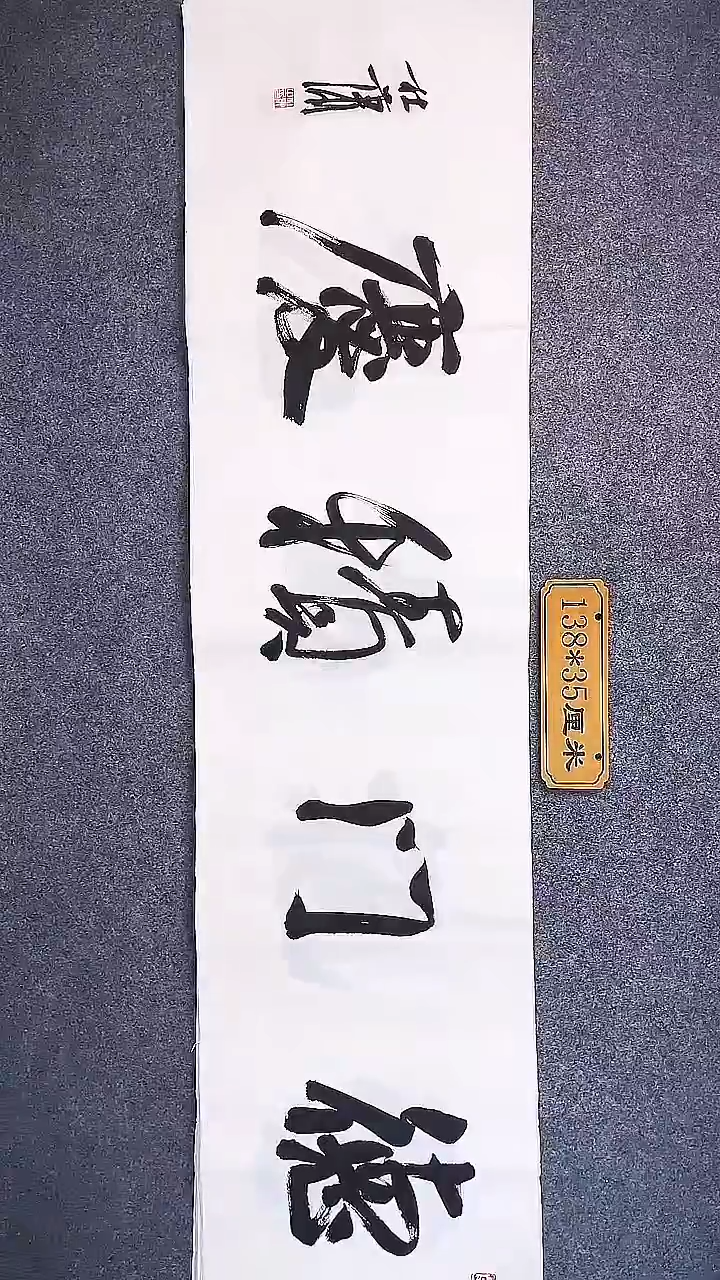 德门積慶
138*35厘米